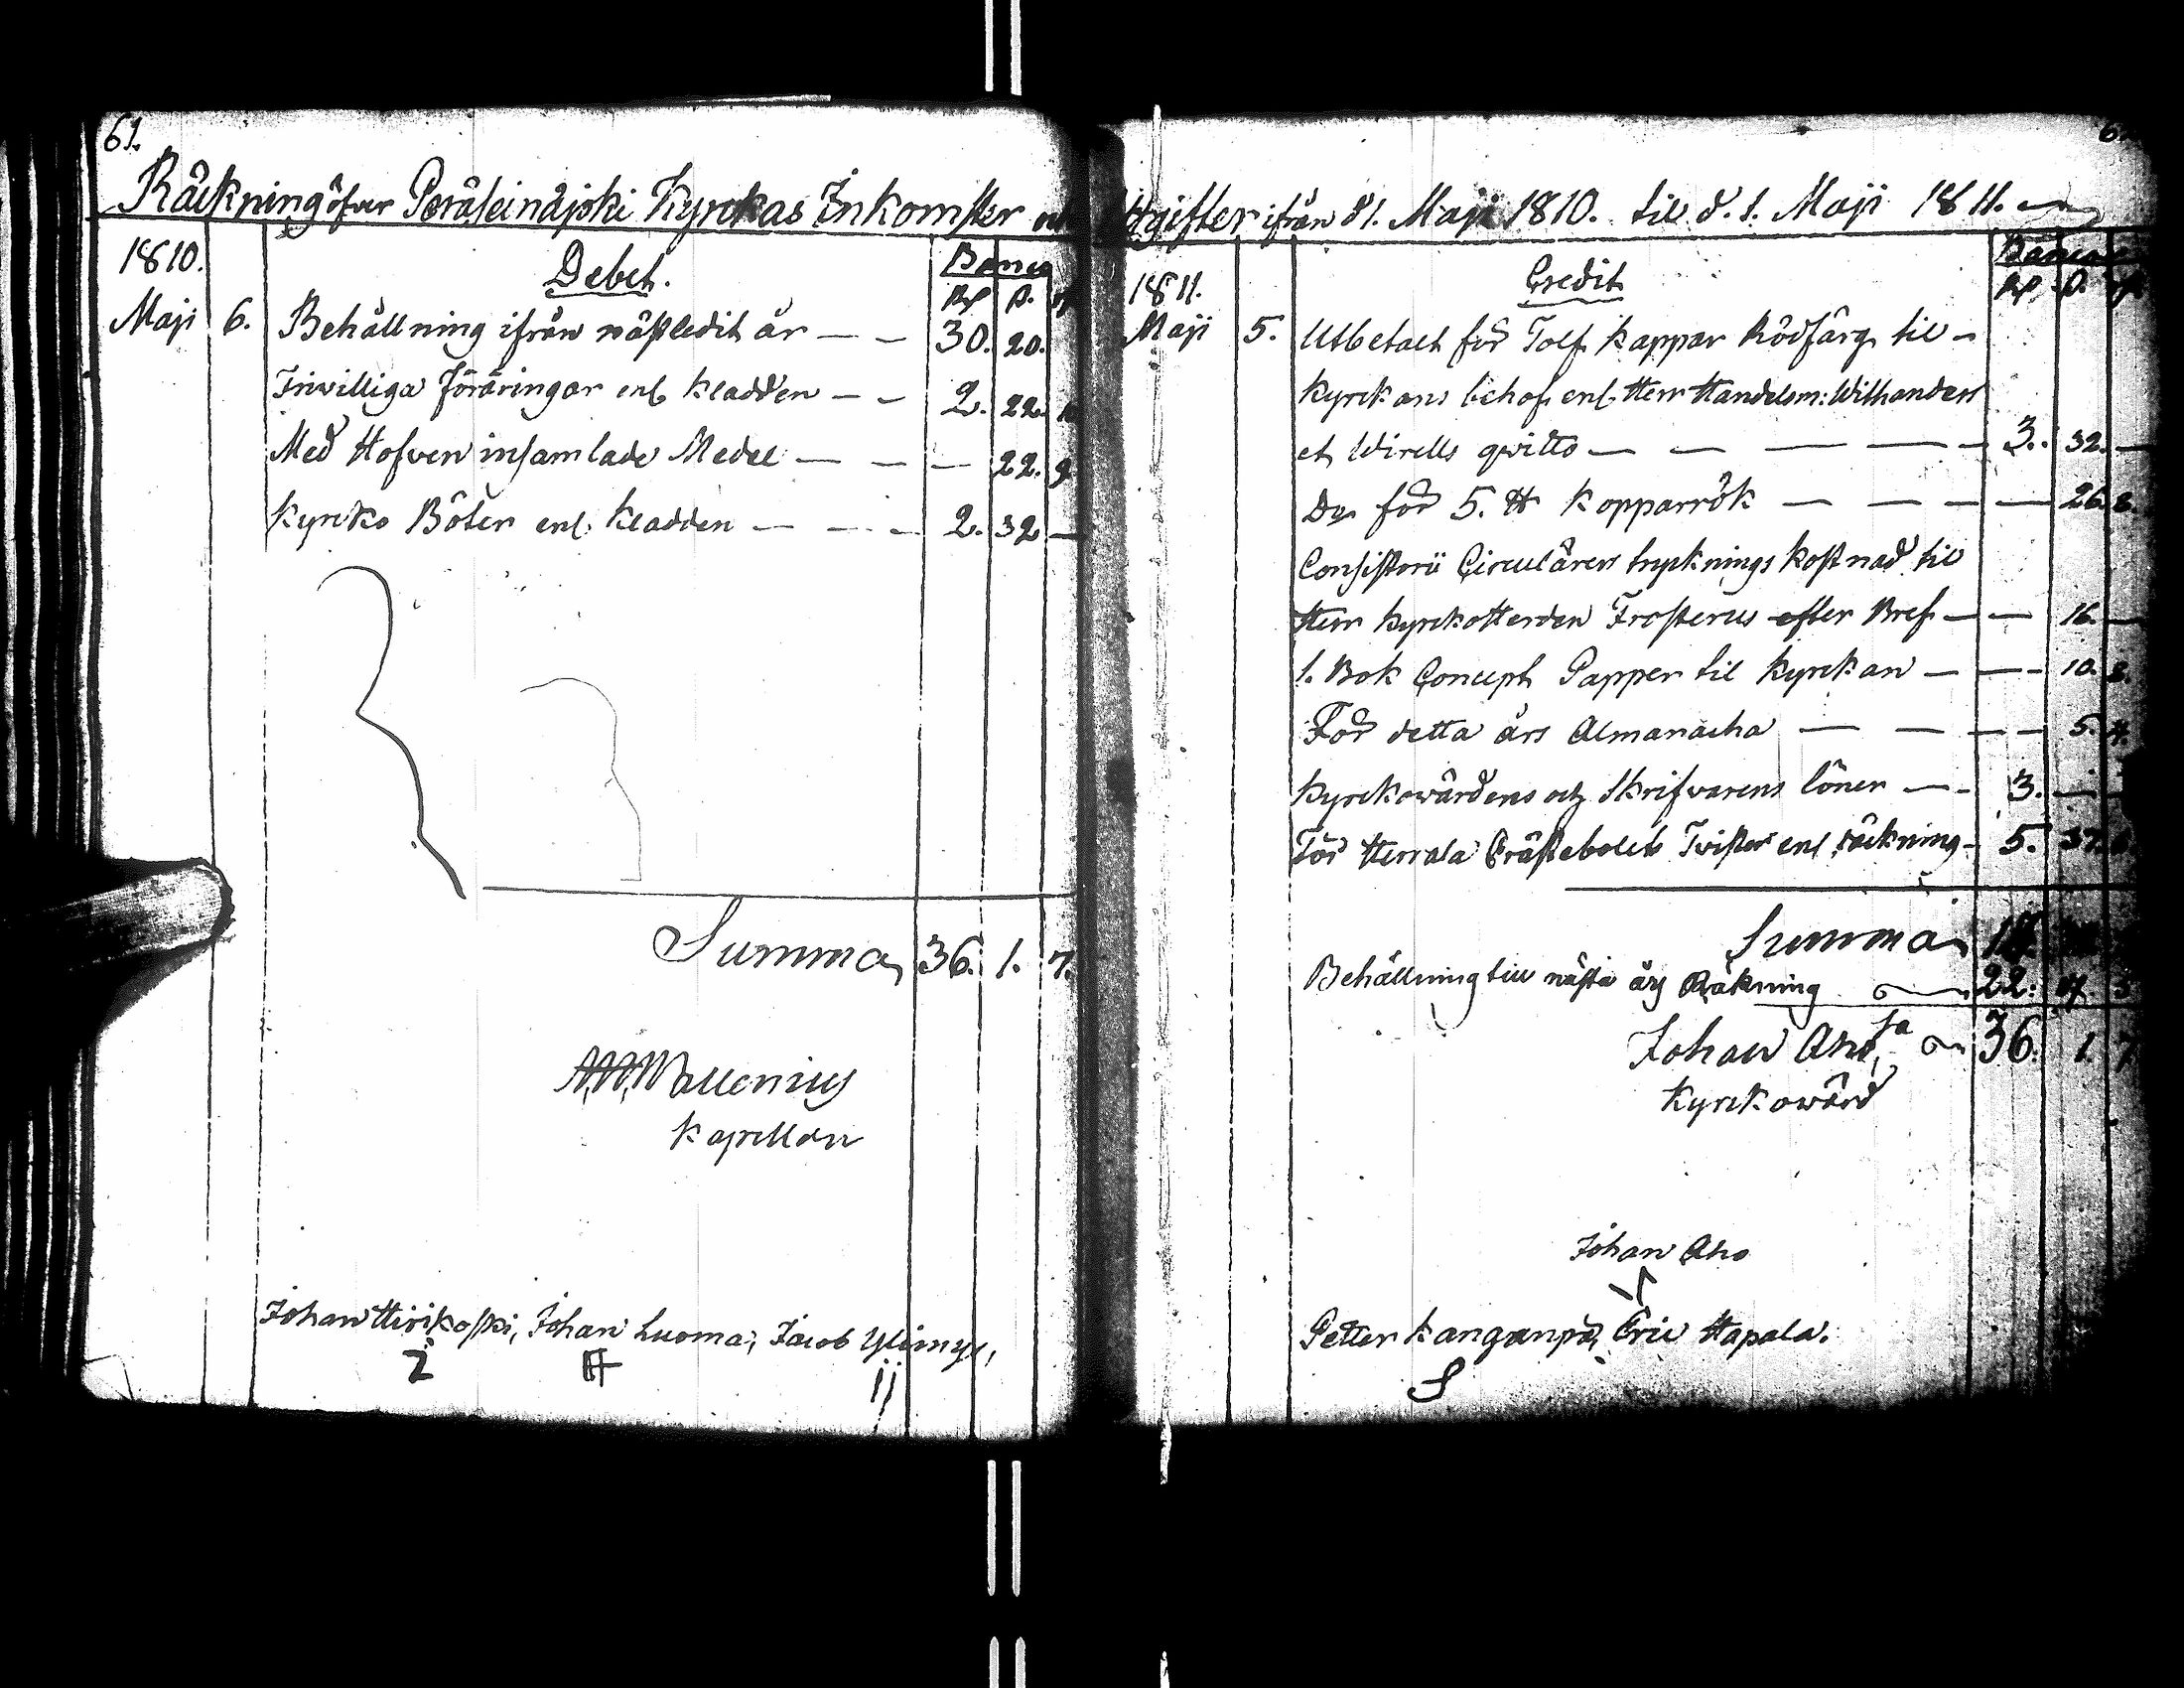 61.
Räckning öfver Peräseinäjoki Kyrckas Inkomster och Utgifter ifrån d 1. Maji 1810. til d. 1. Maji 1811.
1810. Debet. Banco
Rd ß. rst
Maji 6. Behållning ifrån nästledit år — — 30. 20.
Friwilliga Föräringar enl. Kladden — — 2. 22.
Med Hofven insamlade Medel — — — 22. 9
Kyrcko Böter enl. Kladden — — — 2. 32 —
Summa 36. 1. 7.
Wallenius
Kapellan
Johan Hirikoski, Johan Luoma, Jacob Ylimys,
1811. Credit Banco
Rd ß.
Maji 5. Utbetalt för Tolf Kappar Rödfärg til —
Kyrckans behof enl. Herr Handelsm: Withanders
et Wirells qvitto — — — — — 3. 32. —
Do för 5. ℔ Kopparrök — — — — 26. 8.
Consistorii Circulärers tryknings kostnad til
Herr Kyrckoherden Frosterus efter Bref — — 16. —
1. Bok Concept Papper til Kyrckan — — 10. 8.
För detta års Almanacha — — — — 5. 4.
Kyrckowärdens och Skrifvarens löner — — 3. — —
För Herrala Prästebolets Twister enl räckning — 5. 37.
Summa
Behållning till nästa års Räkning 22:
Sa 36. 1. 7
Johan Aho,
Kyrckowärd
Johan Aho
Petter Kanganpä, Eric Hapala.